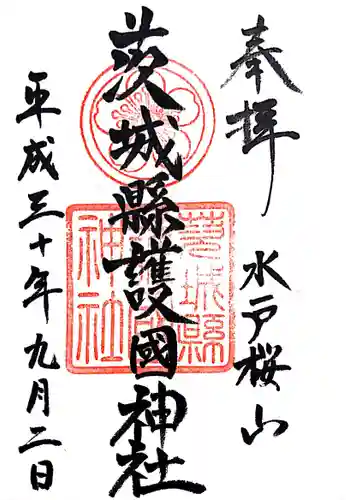 奉拝
水戸桜山
茨城縣護國神社
平成三十年九月二日
茨城縣
護國
神社